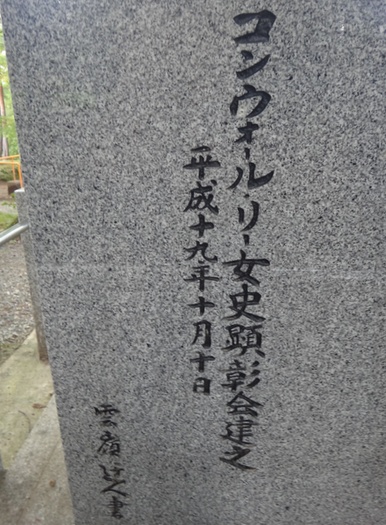 コンウォール・リー女史顕彰会建之
平成十九年十月十日
雲嶺辻人書